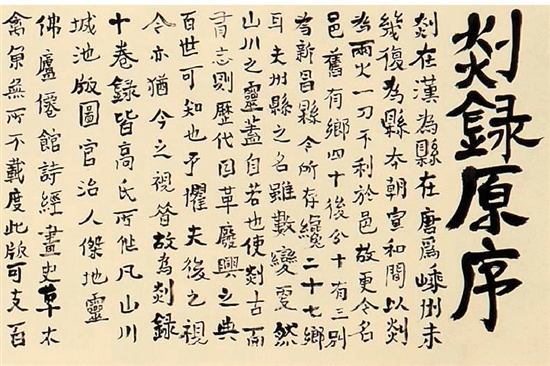 剡録原序
剡在漢為縣在唐為嵊州未
幾復為縣本朝宣和間以剡
為兩火一刀不利於邑故更今名
邑舊有鄉四十後分十有三別
為新昌縣今所存纔二十七鄉
耳夫州縣之名雖數變更然
山川之靈蓋自若也使剡古而
有志則歷代因革廢興之典
百世可知也予懼夫後之視
今亦猶今之視昔故為剡録
十卷録皆高氏所作凡山川
城池版圖官治人傑地靈
佛廬僊館詩經畫史草木
禽魚無所不載度此版可支百